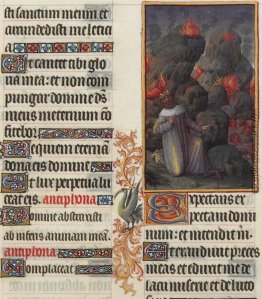 sti saccum meum et
circundedisti me leticia
Ut cantet tibi glo
ria mea: et non com
pungar domine deus
meus in eternum con
fitebor:
Requiem eternam
dona eis domine
Et lux perpetua lu
ceat eis. antiphona
Domine abstraxisti
ab inferis animam meam.
antiphona
Complaceat
Expectans ex
pectavi domi
num: et intendit m
Et exaudivit preces
meas et eduxit me de
lacu miserie et de luto